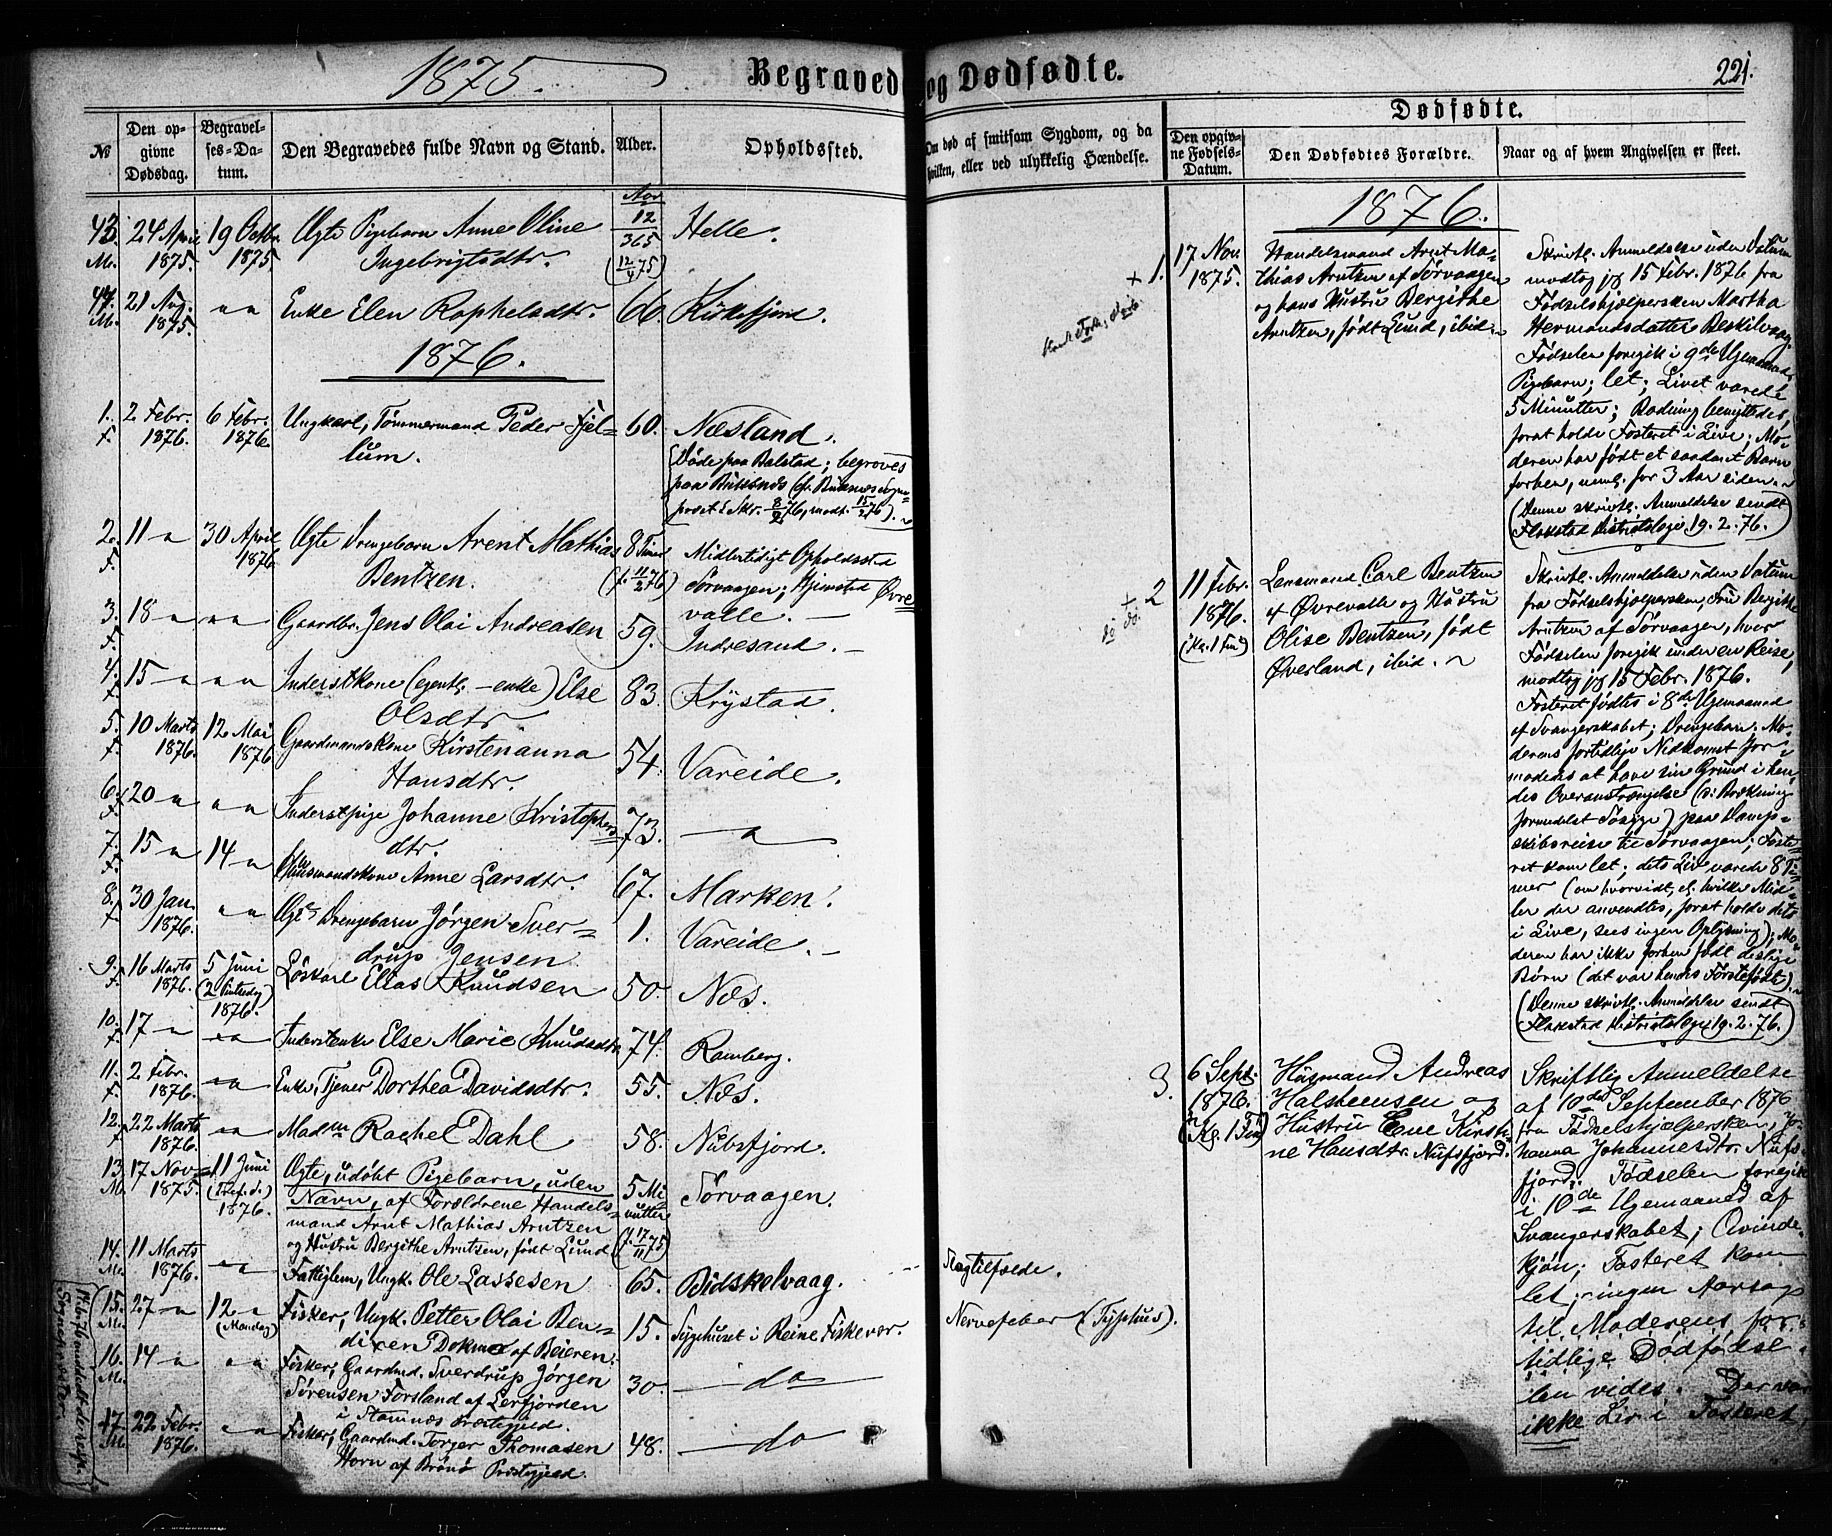 1875.
Begravede og Dødfødte.
221.
№
Den opgivne Dødsdag.
Begravelses-Datum.
Den Begravedes fulde Navn og Stand.
Alder.
Opholdssted.
Om død af smitsom Sygdom, og da hvilken, eller ved ulykkelig Hændelse.
Dødfødte.
Den opgivne Fødsels-Datum.
Den Dødfødtes Forældre.
Naar og af hvem Angivelsen er skeet.
43. 24 April 19 Octbr. Ægte Pigebarn Anne Oline Aar 12/365 Helle.
M. 1875. 1875 Ingebrigtsdtr. (12/4 75)
44. 21 Aug. " " Enke Elen Raphelsdtr. 66. Kirkefjord.
M. 1875.
1876.
1. 2 Febr. 6 Febr. Ungkarl, Tømmermand Peder Fjel- 60. Næsland.
F. 1876. 1876. lum. (Døde paa Balstad; begroves
paa Buksnæs (cfr. Buksnæs Sogne-
præst's Skr. 8/2 76, modt. 15/2 76).
2. 11 " 30 April Ægte Drengebarn Arent Mathias 8 Timer Midlertidigt Opholdssted
F. 1876. Bentzen. (f. 11/2 76) Sørvaagen; Hjemsted Øvre
valle.
3. 18 " " " Gaardbr. Jens Olai Andreasen 59. Indresand.
F.
4. 15 " " " Inderstkone (egentl. -enke) Else 83. Krystad.
F. Olsdtr
5. 10 Marts 12 Mai Gaardmandskone Kirstenanna 54. Vareide.
F. 1876. 1876 Hansdtr.
6. 20 " " " Inderstpige Johanne Kristophers 73. "
F. dtr.
7. 15 " 14 " Huusmandskone Anne Larsdtr. 67. Marken.
F.
8. 30 Jan. " " Ægte Drengebarn Jørgen Sver- 1. Vareide.
F. 1876. drup Jensen
9. 16 Marts 5 Juni Løskarl Elias Knudsen 50. Næs.
F. 1876. (2 Pintsedag) 1876.
10. 17 " " " Inderstenke Else Marie Knudsdtr 74. Ramberg.
F.
11. 2 Febr. " " Enke, Tjener Dorthea Davidsdtr. 55. Næs.
F. 1876.
12. 22 Marts " " Madm Rachel Dahl 58. Nubsfjord.
F. 1876.
13. 17 Nov. 11 Juni Ægte, udøbt Pigebarn, uden 5 Mi- Sørvaagen.
M. 1875. (Tref. S.) Navn, af Forældrene Handels- nutter
1876. mand Arnt Mathias Arntzen (f. 17/11 75)
og Hustru Bergithe Arntzen, født Lund
14. 11 Marts " " Fattiglem, Ungk. Ole Lassesen 65. Bidskelvaag. Slagtilfælde.
M. 1876.
15. 27 " 12 " Fisker, Ungk. Petter Olai Ben- 15. Sygehuset i Reine Fiskevær. Nervefeber (Typhus).
M. (Mandag) dixen Dokmo af Beieren.
16. 14 " " " Fisker, Gaardmd. Sverdrup Jørgen 30. do
M. Sørensen Forsland af Leirfjorden
i Stamnæs Præstegjeld.
17. 22 Febr. " " Fisker, Gaardmd. Torger Thomasen 48. do
M. 1876. Horn af Brønø Præstegjeld.
1876.
+ 1. 17 Nov. 1875.
Handelsmand Arent Ma-
thias Arntzen af Sørvaagen
og hans Hustru Bergithe
Arntzen, født Lund, ibid.
Skriftl. Anmeldelse uden Datum
modtog jeg 15 Febr. 1876 fra
Fødselshjælpersken Martha
Hermandsdatter Beskilvaag.
Fødselen foregik i 9de Ugemaaned,
Pigebarn; let; Livet varede
5 Minutter; Badning benyttedes,
forat holde Fosteret i Live; Mo-
deren har født et saadant Barn
forhen, neml. for 3 Aar siden.
(Denne skriftl. Anmeldelse sendt
Flakstad Distriktslæge 19. 2. 76.)
+ 2 11 Febr. 1876. (Kg. 1 Fm)
do do.
Lensmand Carl Bentzen
af Øvrevalle og Hustru
Olise Bentzen, født
Øverland, ibid.
Skriftl. Anmeldelse uden Datum
fra Fødselshjælpersken, Fru Bergithe
Arntzen af Sørvaagen, hvor
Fødselen foregik under en Reise,
modtog jeg 15 Febr. 1876.
Fosteret fødtes i 8de Ugemaaned
af Svangerskabet; Drengebarn. Mo-
derens fortidlige Nedkomst for-
modedes at have sin Grund i hen-
des Overanstrængelse (ɔ: Brækning
formedelst Søsyge) paa Damp-
skibsreise til Sørvaagen; Foste-
ret kom let; dets Liv varede 8 Ti-
mer (om hvorvidt, el. hvilke Mid-
ler der anvendtes, forat holde dets
i Live, sees ingen Oplysning); Mo-
deren har ikke forhen født deslige
Børn (det var hendes Førstefødte).
(Denne skriftl. Anmeldelse sendt
Flakstad Distriktslæge 19. 2. 76.)
3. 6 Septr. 1876. (Kl. 1 Fm)
Husmand Andreas
Halstensen og
Hustru Ene Kirsti-
ne Hansdtr. Nufsfjord.
Skriftlig Anmeldelse
af 10de September 1876
fra Fødselshjælpersken, Jo-
hanna Johannesdtr. Nufs-
fjord. Fødselen foregik
i 10de Ugemaaned af
Svangerskabet; Qvinde-
kjøn; Fosteret kom
let; ingen Aarsag
til Moderens for-
tidlige Dødfødsel-
len vides. Der var
ikke Liv i Fosteret.